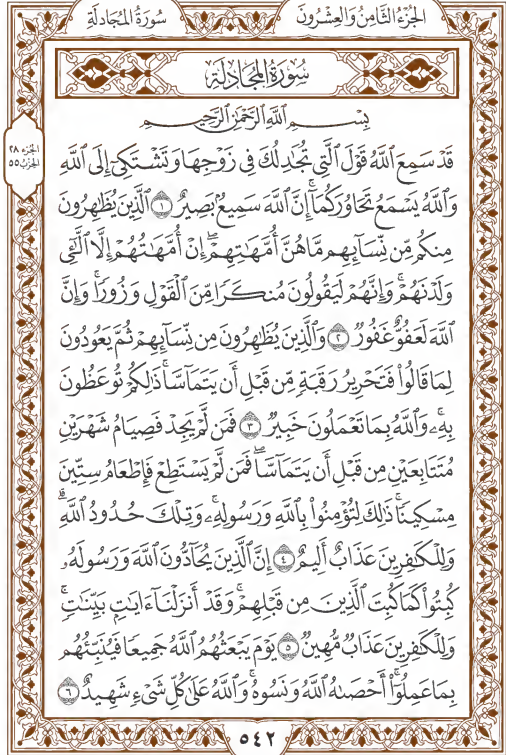 الجزء الثامن والعشرون
سورة المجادلة
سُورَةُ المُجَادلَةِ
الجزء ٢٨
الحزب ٥٥
بِسْمِ ٱللَّهِ ٱلرَّحْمَٰنِ ٱلرَّحِيمِ
قَدْ سَمِعَ ٱللَّهُ قَوْلَ ٱلَّتِي تُجَٰدِلُكَ فِي زَوْجِهَا وَتَشْتَكِيٓ إِلَى ٱللَّهِ
وَٱللَّهُ يَسْمَعُ تَحَاوُرَكُمَآۚ إِنَّ ٱللَّهَ سَمِيعُۢ بَصِيرٌ ١ ٱلَّذِينَ يُظَٰهِرُونَ
مِنكُم مِّن نِّسَآئِهِم مَّا هُنَّ أُمَّهَٰتِهِمْۖ إِنْ أُمَّهَٰتُهُمْ إِلَّا ٱلَّٰٓـِٔي
وَلَدْنَهُمْۚ وَإِنَّهُمْ لَيَقُولُونَ مُنكَرٗا مِّنَ ٱلْقَوْلِ وَزُورٗاۚ وَإِنَّ
ٱللَّهَ لَعَفُوٌّ غَفُورٞ ٢ وَٱلَّذِينَ يُظَٰهِرُونَ مِن نِّسَآئِهِمْ ثُمَّ يَعُودُونَ
لِمَا قَالُواْ فَتَحْرِيرُ رَقَبَةٖ مِّن قَبْلِ أَن يَتَمَآسَّاۚ ذَٰلِكُمْ تُوعَظُونَ
بِهِۦۚ وَٱللَّهُ بِمَا تَعْمَلُونَ خَبِيرٞ ٣ فَمَن لَّمْ يَجِدْ فَصِيَامُ شَهْرَيْنِ
مُتَتَابِعَيْنِ مِن قَبْلِ أَن يَتَمَآسَّاۖ فَمَن لَّمْ يَسْتَطِعْ فَإِطْعَامُ سِتِّينَ
مِسْكِينٗاۚ ذَٰلِكَ لِتُؤْمِنُواْ بِٱللَّهِ وَرَسُولِهِۦۚ وَتِلْكَ حُدُودُ ٱللَّهِۗ
وَلِلْكَٰفِرِينَ عَذَابٌ أَلِيمٌ ٤ إِنَّ ٱلَّذِينَ يُحَآدُّونَ ٱللَّهَ وَرَسُولَهُۥ
كُبِتُواْ كَمَا كُبِتَ ٱلَّذِينَ مِن قَبْلِهِمْۚ وَقَدْ أَنزَلْنَآ ءَايَٰتِۭ بَيِّنَٰتٖۚ
وَلِلْكَٰفِرِينَ عَذَابٞ مُّهِينٞ ٥ يَوْمَ يَبْعَثُهُمُ ٱللَّهُ جَمِيعٗا فَيُنَبِّئُهُم
بِمَا عَمِلُوٓاْۚ أَحْصَىٰهُ ٱللَّهُ وَنَسُوهُۚ وَٱللَّهُ عَلَىٰ كُلِّ شَيْءٖ شَهِيدٌ ٦
٥٤٢